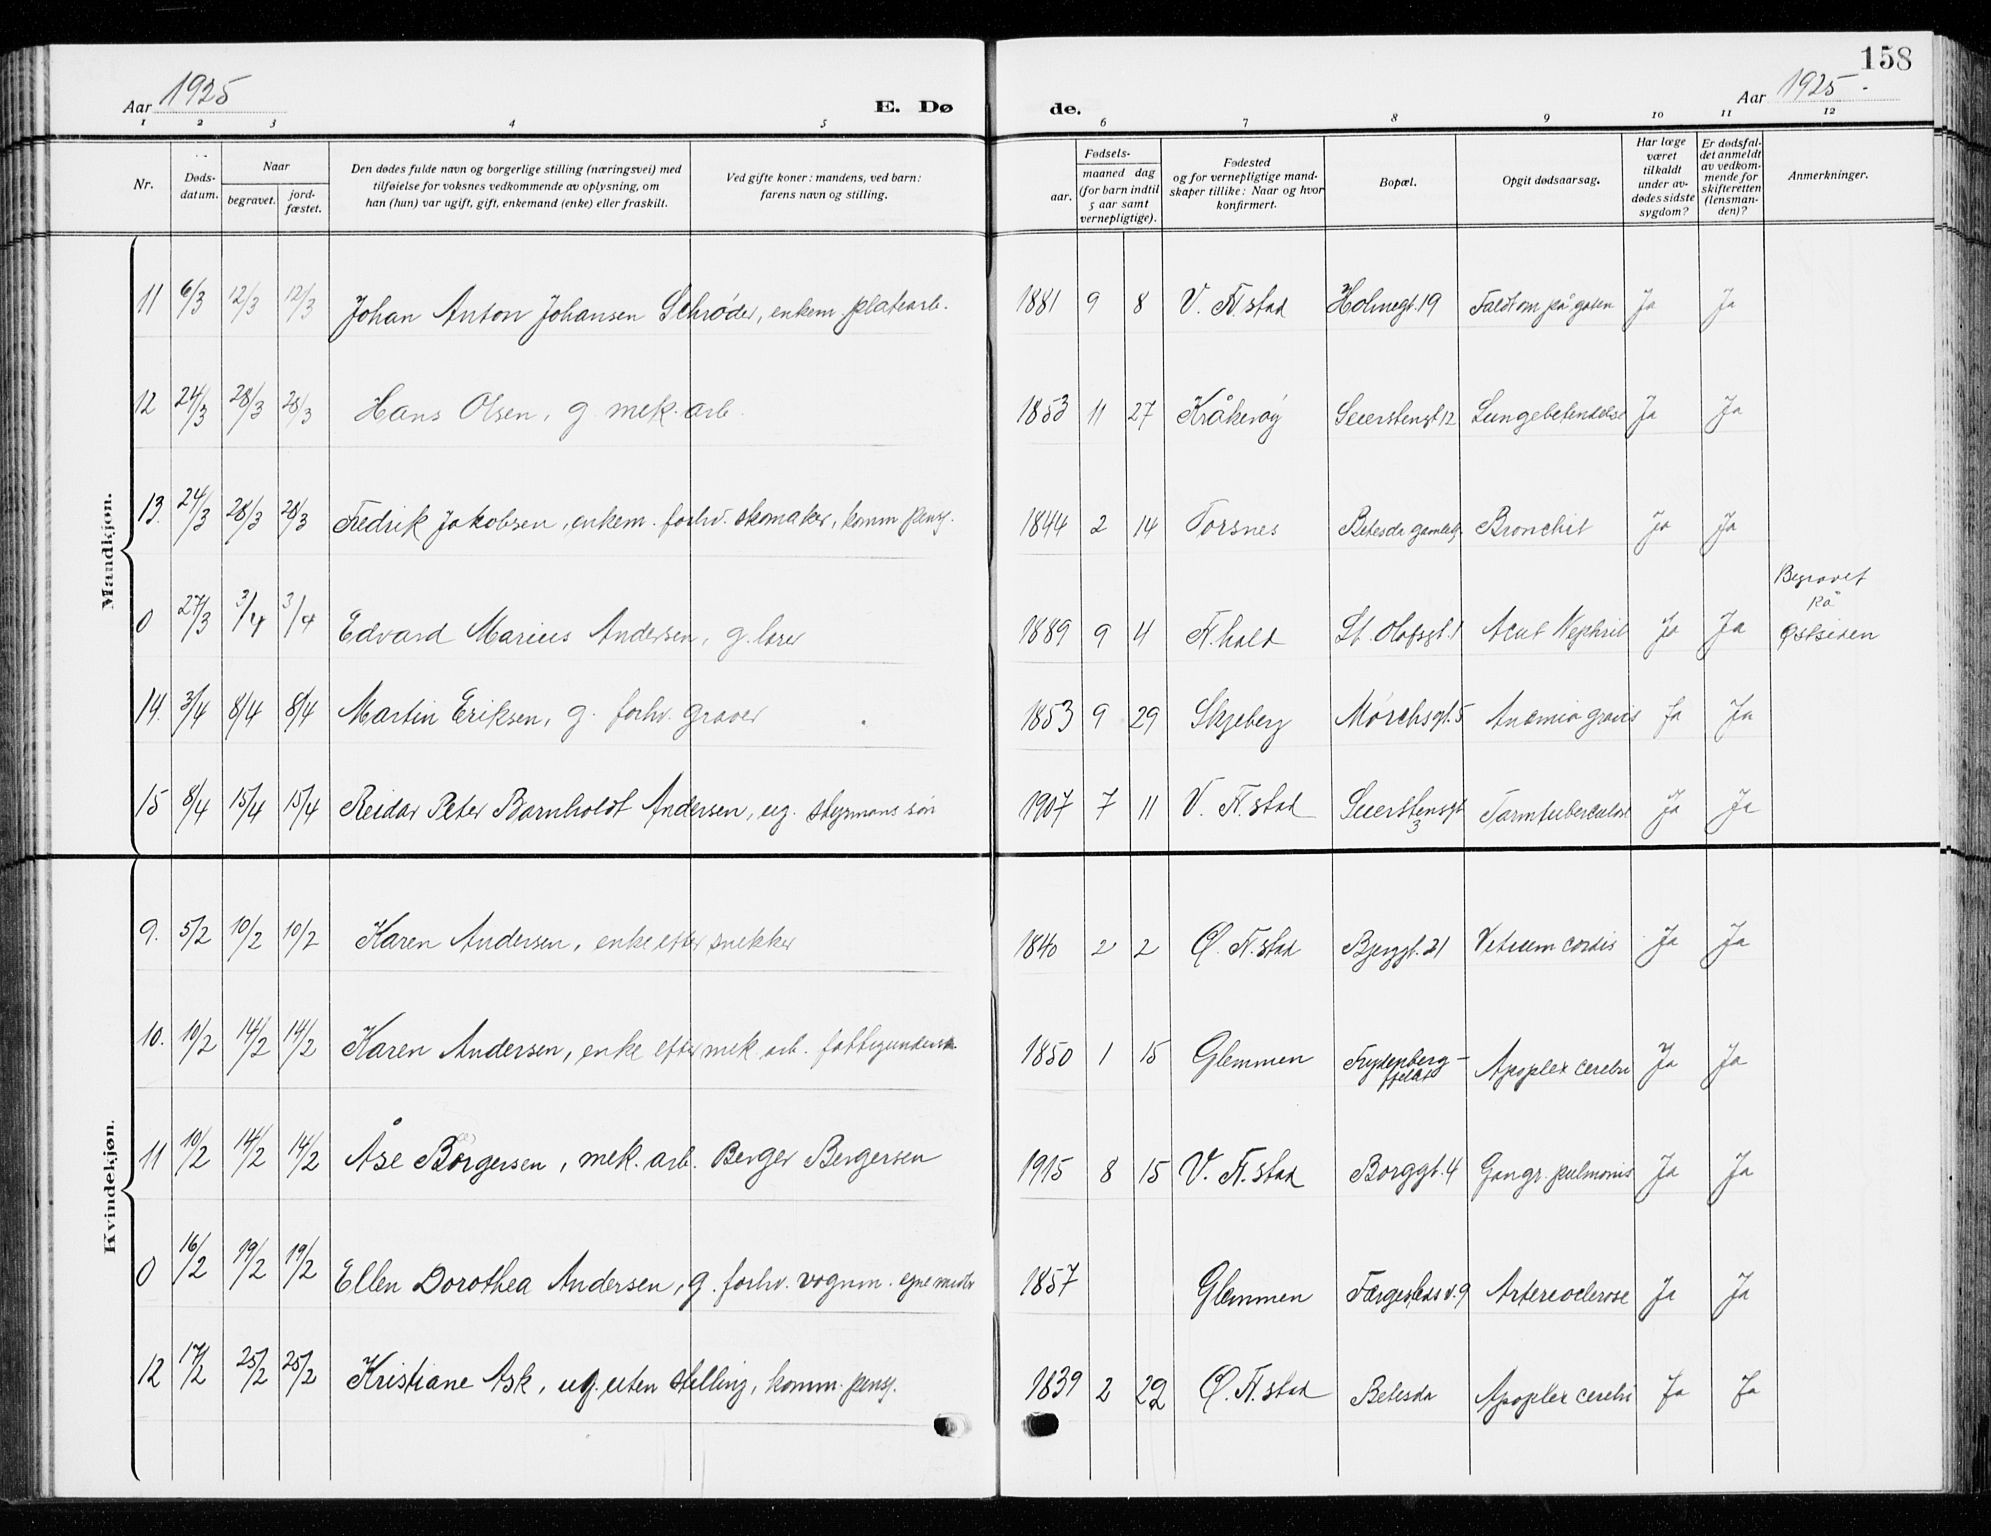 158
Aar 1925 E. Dø de. Aar 1925.
1 2 3 4 5 6 7 8 9 10 11 12
Nr.
Døds-
datum.
Naar
begravet.
jord-
fæstet.
Den dødes fulde navn og borgerlige stilling (næringsvei) med
tilføielse for voksnes vedkommende av oplysning, om
han (hun) var ugift, gift, enkemand (enke) eller fraskilt.
Ved gifte koner: mandens, ved barn:
farens navn og stilling.
Fødsels-
aar.
maaned dag
(for barn indtil
5 aar samt
vernepligtige).
Fødested
og for vernepligtige mand-
skaper tillike: Naar og hvor
konfirmert.
Bopæl.
Opgit dødsaarsag.
Har læge
været
tilkaldt
under av-
dødes sidste
sygdom?
Er dødsfal-
det anmeldt
av vedkom-
mende for
skifteretten
(lensman-
den)?
Anmerkninger.
Mandkjøn.
11 6/3 12/3 12/3 Johan Anton Johansen Schrøder, enkem. platearb. 1881 9 8 V. Fr.stad Holmegt. 19 Faldt om på gaten Ja Ja
12 24/3 28/3 28/3 Hans Olsen, g. mek. arb. 1853 11 27 Kråkerøy Seierstensgt 12 Lungebetendelse Ja Ja
13. 24/3 28/3 28/3 Fredrik Jakobsen, enkem. forhv. skomaker, komm. pensj. 1844 2 14 Torsnes Betesda gamleh. Bronchit Ja Ja
0 27/3 3/4 3/4 Edvard Marius Andersen, g. lærer 1889 9 4 Fr.hald St. Olafsgt. 1 Acut Nephrit Ja Ja Begravet
på
Østsiden
14. 3/4 8/4 8/4 Martin Eriksen, g. forhv. graver 1853 9 29 Skjeberg Mørchsgt. 5 Anæmia gravis Ja Ja
15 8/4 15/4 15/4 Reidar Peter Barnholdt Andersen, ug. styrmans søn 1907 7 11 V. Fr.stad Seierstensgt
3 Tarmtuberculose Ja Ja
Kvindekjøn.
9. 5/2 10/2 10/2 Karen Andersen, enke efter snekker 1840 2 2 Ø. Fr.stad Bjerggt. 21 Vitium cordis Ja Ja
10. 10/2 14/2 14/2 Karen Andersen, enke efter mek. arb. fattigunderst. 1850 1 15 Glemmen Frydenberg-
fjeldet Apoplex cerebri Ja Ja
11 10/2 14/2 14/2 Åse Børgersen, mek. arb. Berger Bergersen 1915 8 15 V. Fr.stad Borggt. 4 Gangr. pulmonis Ja Ja
0 16/2 19/2 19/2 Ellen Dorothea Andersen, g. forhv. vognm. 1857 Glemmen Færgestedsv. 9 Artereoclerose Ja Ja
12 17/2 25/2 25/2 Kristiane Ask, ug. uten stilling, komm. pensj. 1839 2 22 Ø. Fr.stad Betesda Apoplex cerebri Ja Ja